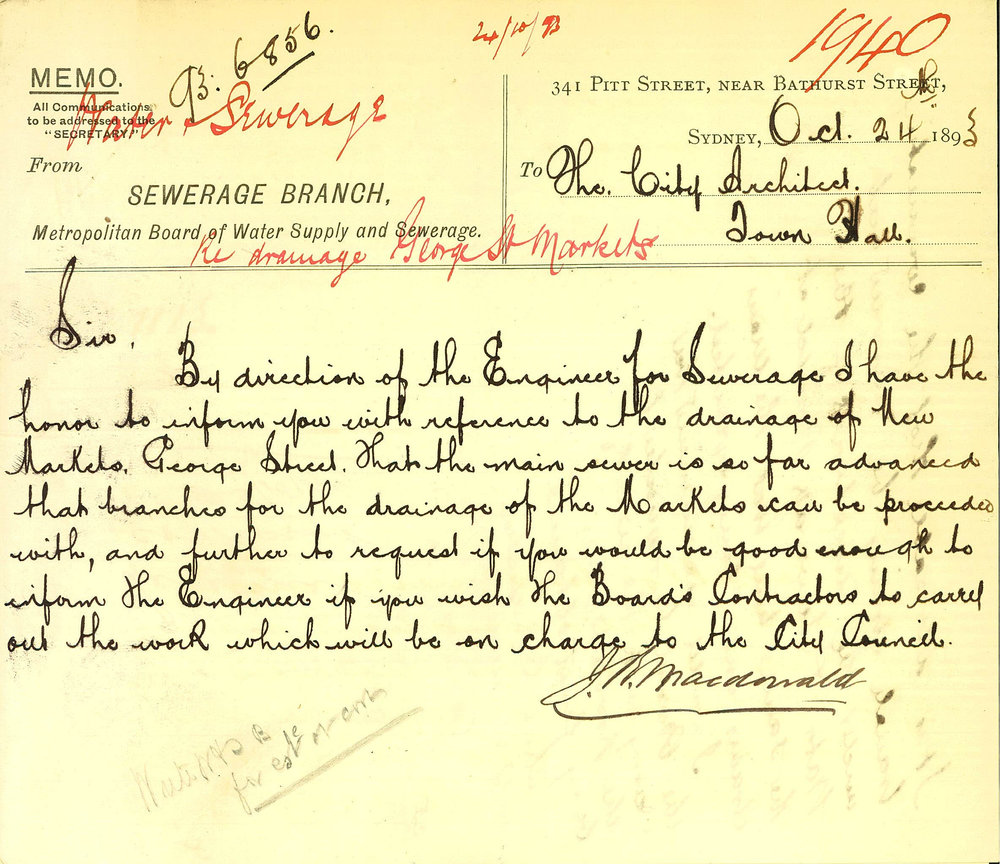 93. 6856.
24/10/93
1940
MEMO.
All Communications
to be addressed to the
"SECRETARY."
Water & Sewerage
From
SEWERAGE BRANCH,
Metropolitan Board of Water Supply and Sewerage.
Re drainage George St Markets
341 PITT STREET, NEAR BATHURST STREET,
SYDNEY, Oct. 24 1893
To The City Architect.
Town Hall.
Sir,
By direction of the Engineer for Sewerage I have the
honor to inform you with reference to the drainage of New
Markets, George Street, that the main sewer is so far advanced
that branches for the drainage of the Markets can be proceeded
with, and further to request if you would be good enough to
inform the Engineer if you wish the Board's Contractors to carry
out the work which will be on charge to the City Council.
Macdonald
for este of cost